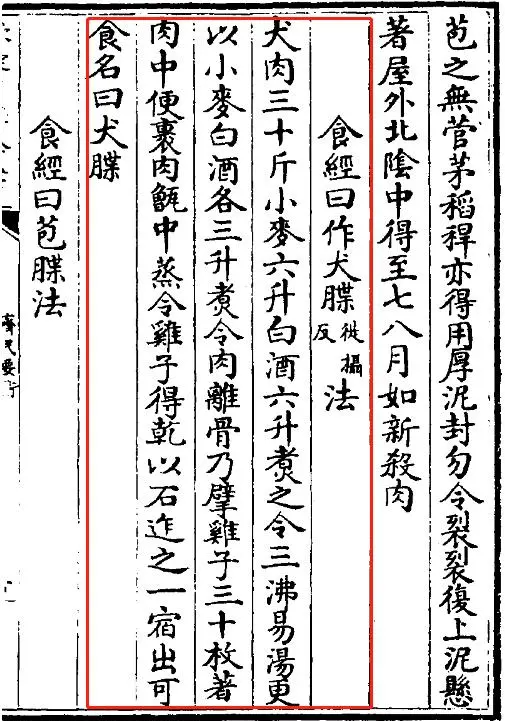 苞之無菅茅稻稈亦得用厚泥封勿令裂裂復上泥懸
著屋外北陰中得至七八月如新殺肉
食經曰作犬䐑徙攝反法
犬肉三十斤小麥六升白酒六升煮之令三沸易湯更
以小麥白酒各三升煮令肉離骨乃擘雞子三十枚著
肉中便裹肉甑中蒸令雞子得乾以石迮之一宿出可
食名曰犬䐑
食經曰苞䐑法
齊民要術